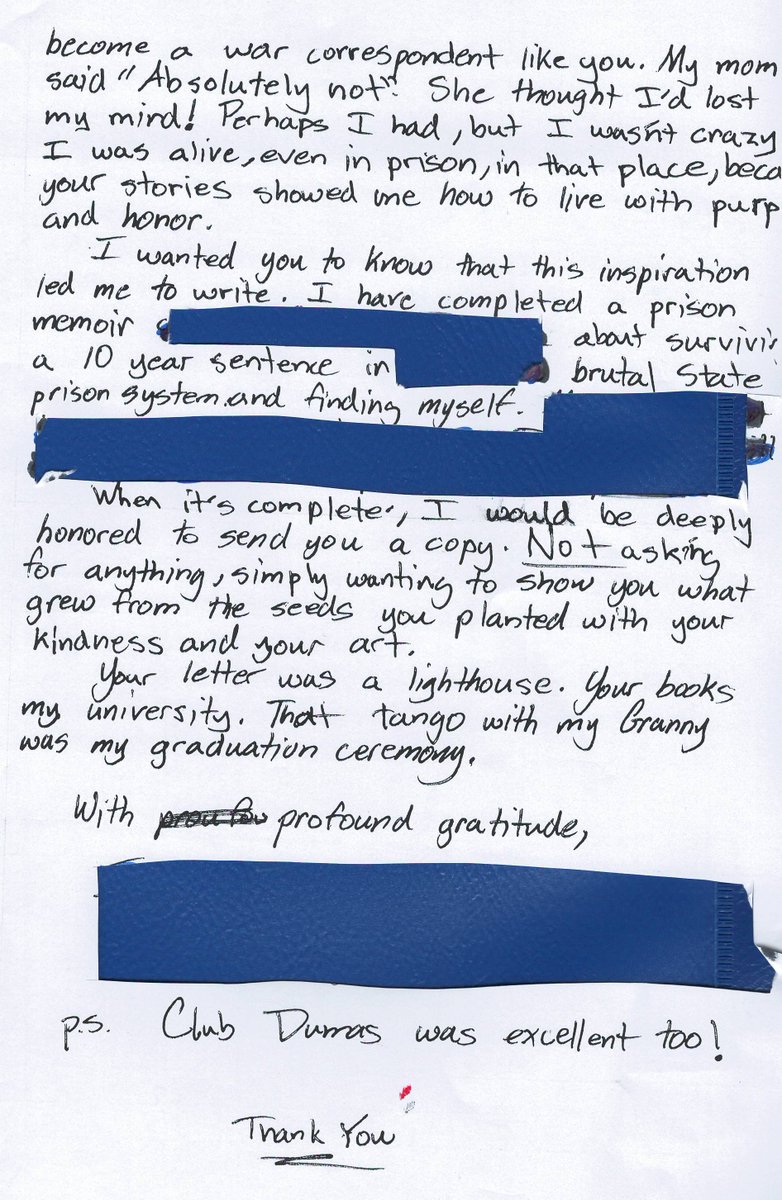 become a war correspondent like you. My mom
said "Absolutely not". She thought I'd lost
my mind! Perhaps I had, but I wasn't crazy
I was alive, even in prison, in that place, beca
your stories showed me how to live with purp
and honor.
I wanted you to know that this inspiration
led me to write. I have completed a prison
memoir about survivi
a 10 year sentence in brutal State
prison system. and finding myself.
When it's complete, I would be deeply
honored to send you a copy. Not asking
for anything, simply wanting to show you what
grew from the seeds you planted with your
kindness and your art.
Your letter was a lighthouse. Your books
my university. That tango with my Granny
was my graduation ceremony.
With profound gratitude,
p.s. Club Dumas was excellent too!
Thank You